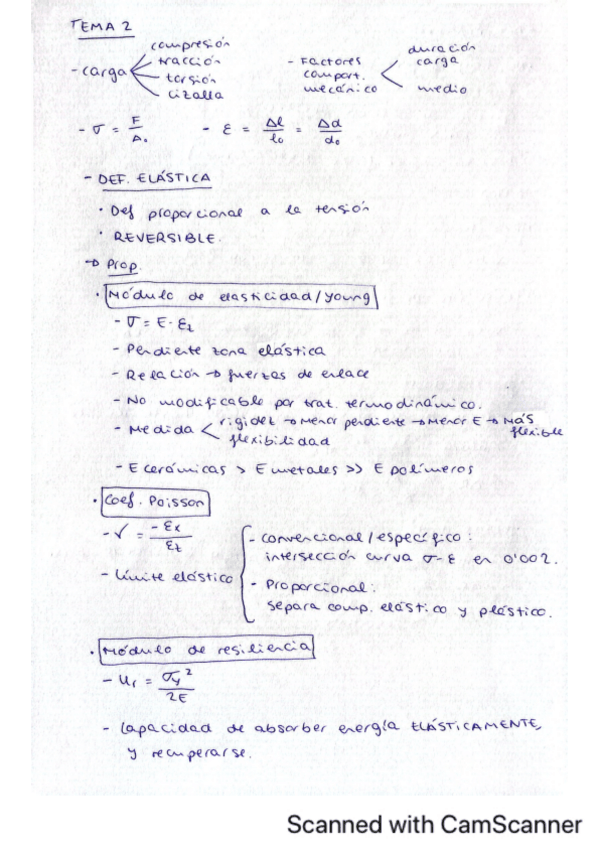 TEMA 2
- carga
compresión
tracción
torsión
cizalla
- Factores comport. mecánico
duración carga
medio
- σ = F/A₀
- ε = Δl/l₀ = Δd/d₀
- DEF. ELÁSTICA
· Def proporcional a la tensión
· REVERSIBLE.
→ Prop.
· Módulo de elasticidad/Young
- σ = E · εz
- Pendiente zona elástica
- Relación → fuerzas de enlace
- No modificable por trat. termodinámico.
- Medida < rigidez → Menor pendiente → Menor E → MÁS flexible
flexibilidad
- E cerámicas > E metales >> E polímeros
· Coef. Poisson
- ν = -εx/εz
- Límite elástico
- convencional/específico:
intersección curva σ-ε en 0'002.
- Proporcional:
separa comp. elástico y plástico.
· Módulo de resiliencia
- Ur = σy²/2E
- Capacidad de absorber energía ELÁSTICAMENTE,
y recuperarse.
Scanned with CamScanner